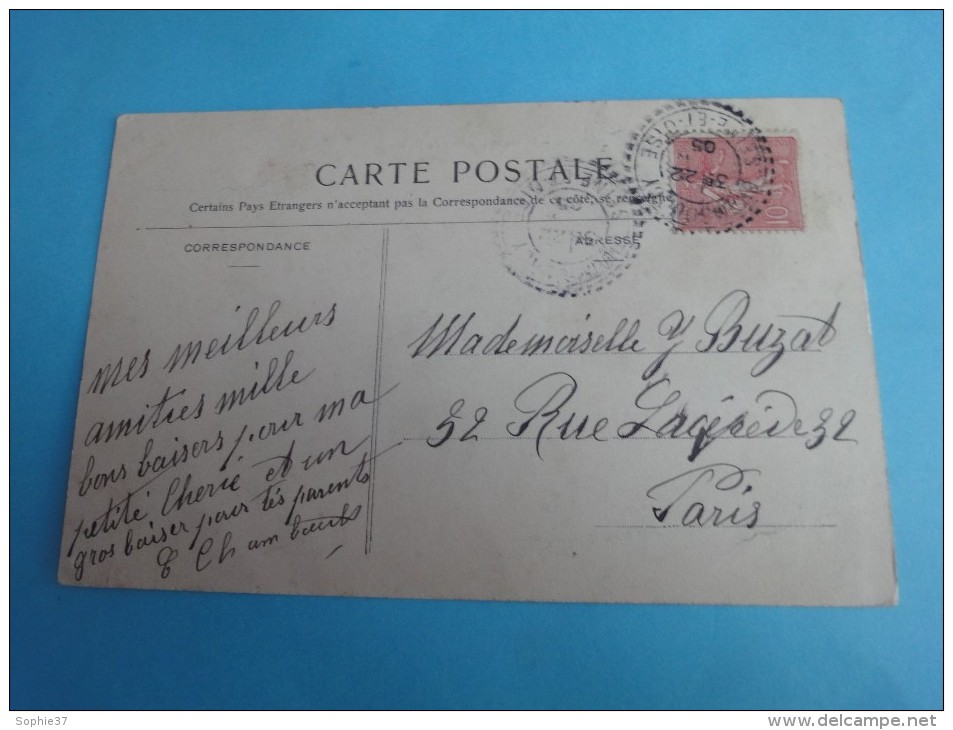 CARTE POSTALE
Certains Pays Etrangers n'acceptant pas la Correspondance de ce côté, se renseigner
CORRESPONDANCE
ADRESSE
mes meilleurs
amities mille
bons baisers pour ma
petite Cherie et un
gros baiser pour tes parents
Mademoiselle Y Buzat
32 Rue Lacépède 32
Paris
SEINE-ET-OISE
22
05
10
Sophie37
www.delcampe.net